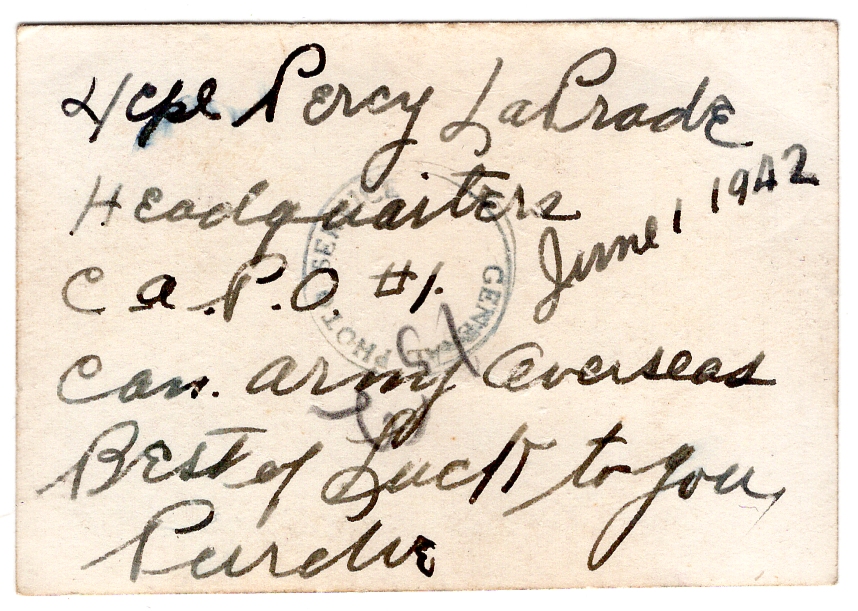 L/cpl Percy LaPrade
Headquarters
June 1 1942
C.A.P.O #1.
Can. Army Overseas
Best of Luck to you,
GENERAL PHOTO SERVICE